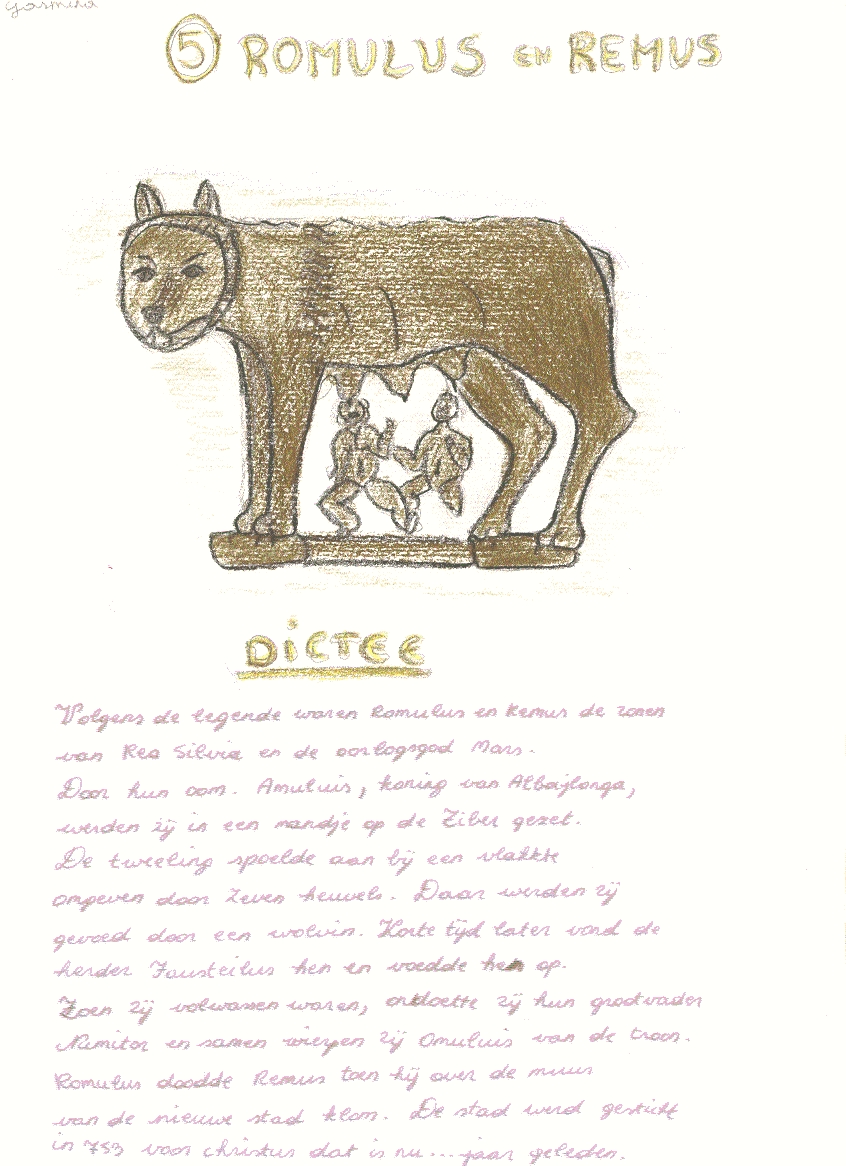 Yasmina
5 ROMULUS EN REMUS
DiCTEE
Volgens de legende waren Romulus en Remus de zonen
van Rea Silvia en de oorlogsgod Mars.
Door hun oom. Amuluis, koning van Albajlonga,
werden zij in een mandje op de Tiber gezet.
De tweeling spoelde aan bij een vlakkte
omgeven door Zeven heuvels. Daar werden zij
gevoed door een wolvin. Korte tijd later vond de
herder Fausteilus hen en voedde hen op.
Toen zij volwassen waren, ontdoette zij hun grootvader
Numitor en samen wierpen zij Omuluis van de troon.
Romulus doodde Remus toen hij over de muur
van de nieuwe stad klom. De stad werd gesticht
in 753 voor christus dat is nu ... jaar geleden.